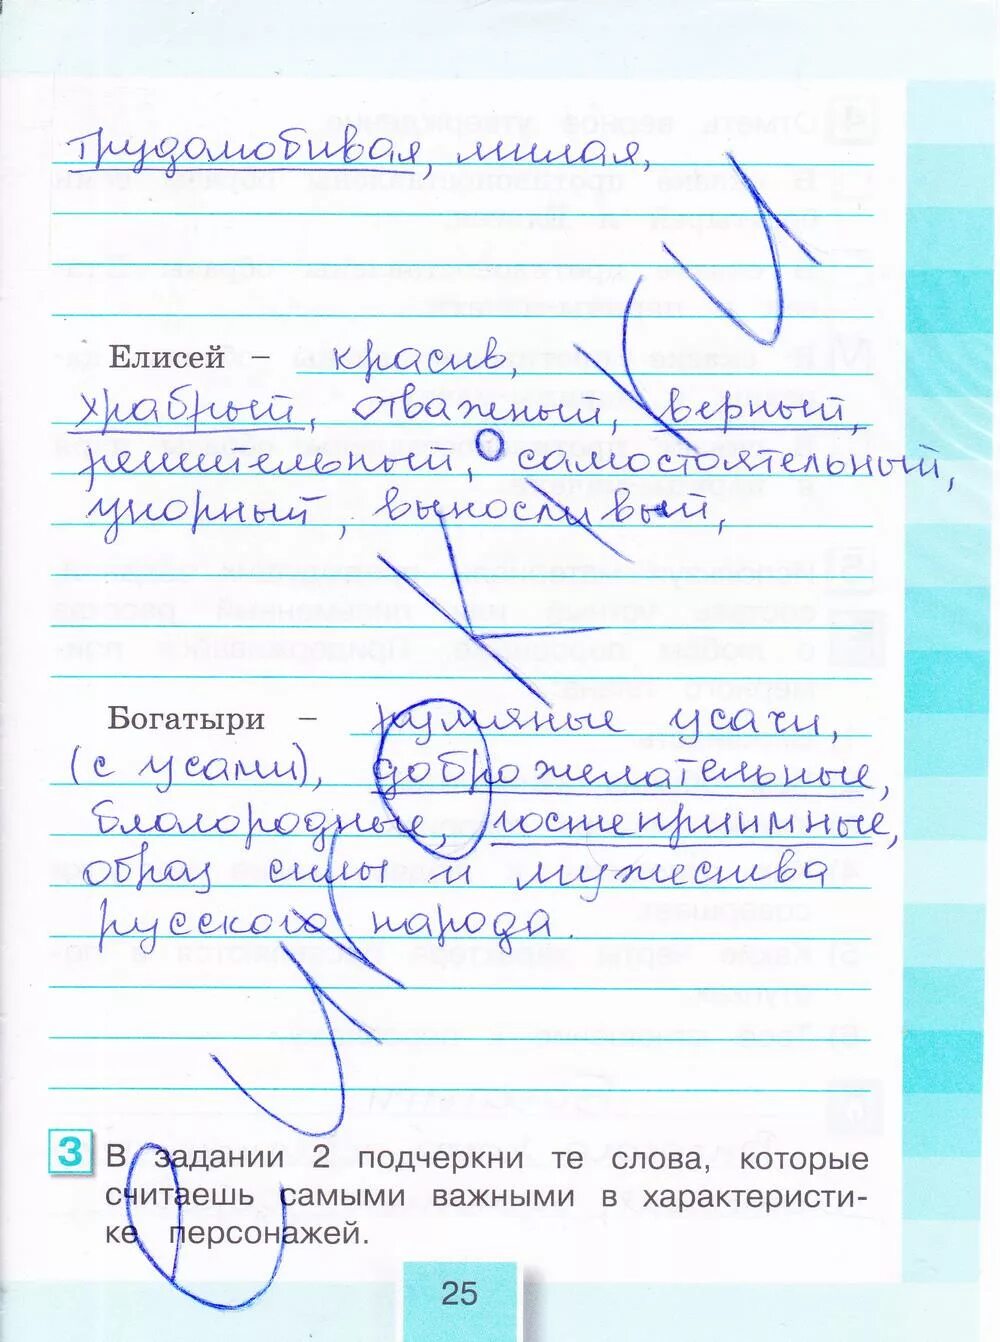 Трудолюбивая, милая,
Елисей – красив,
храбрый, отваженый, верный,
решительный, самостоятельный,
упорный, выносливый,
Богатыри – румяные усачи,
(с усами), доброжелательные,
благородные, гостеприимные,
образ силы и мужества
русского народа.
3 В задании 2 подчеркни те слова, которые
считаешь самыми важными в характеристи-
ке персонажей.
25